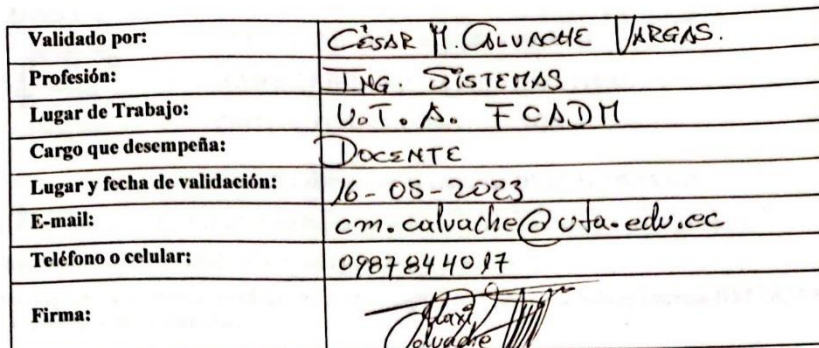 Validado por: CÉSAR M. CALVACHE VARGAS.
Profesión: ING. SISTEMAS
Lugar de Trabajo: U.T.A. FCADM
Cargo que desempeña: DOCENTE
Lugar y fecha de validación: 16-05-2023
E-mail: cm.calvache@uta.edu.ec
Teléfono o celular: 0987844017
Firma: Calvache